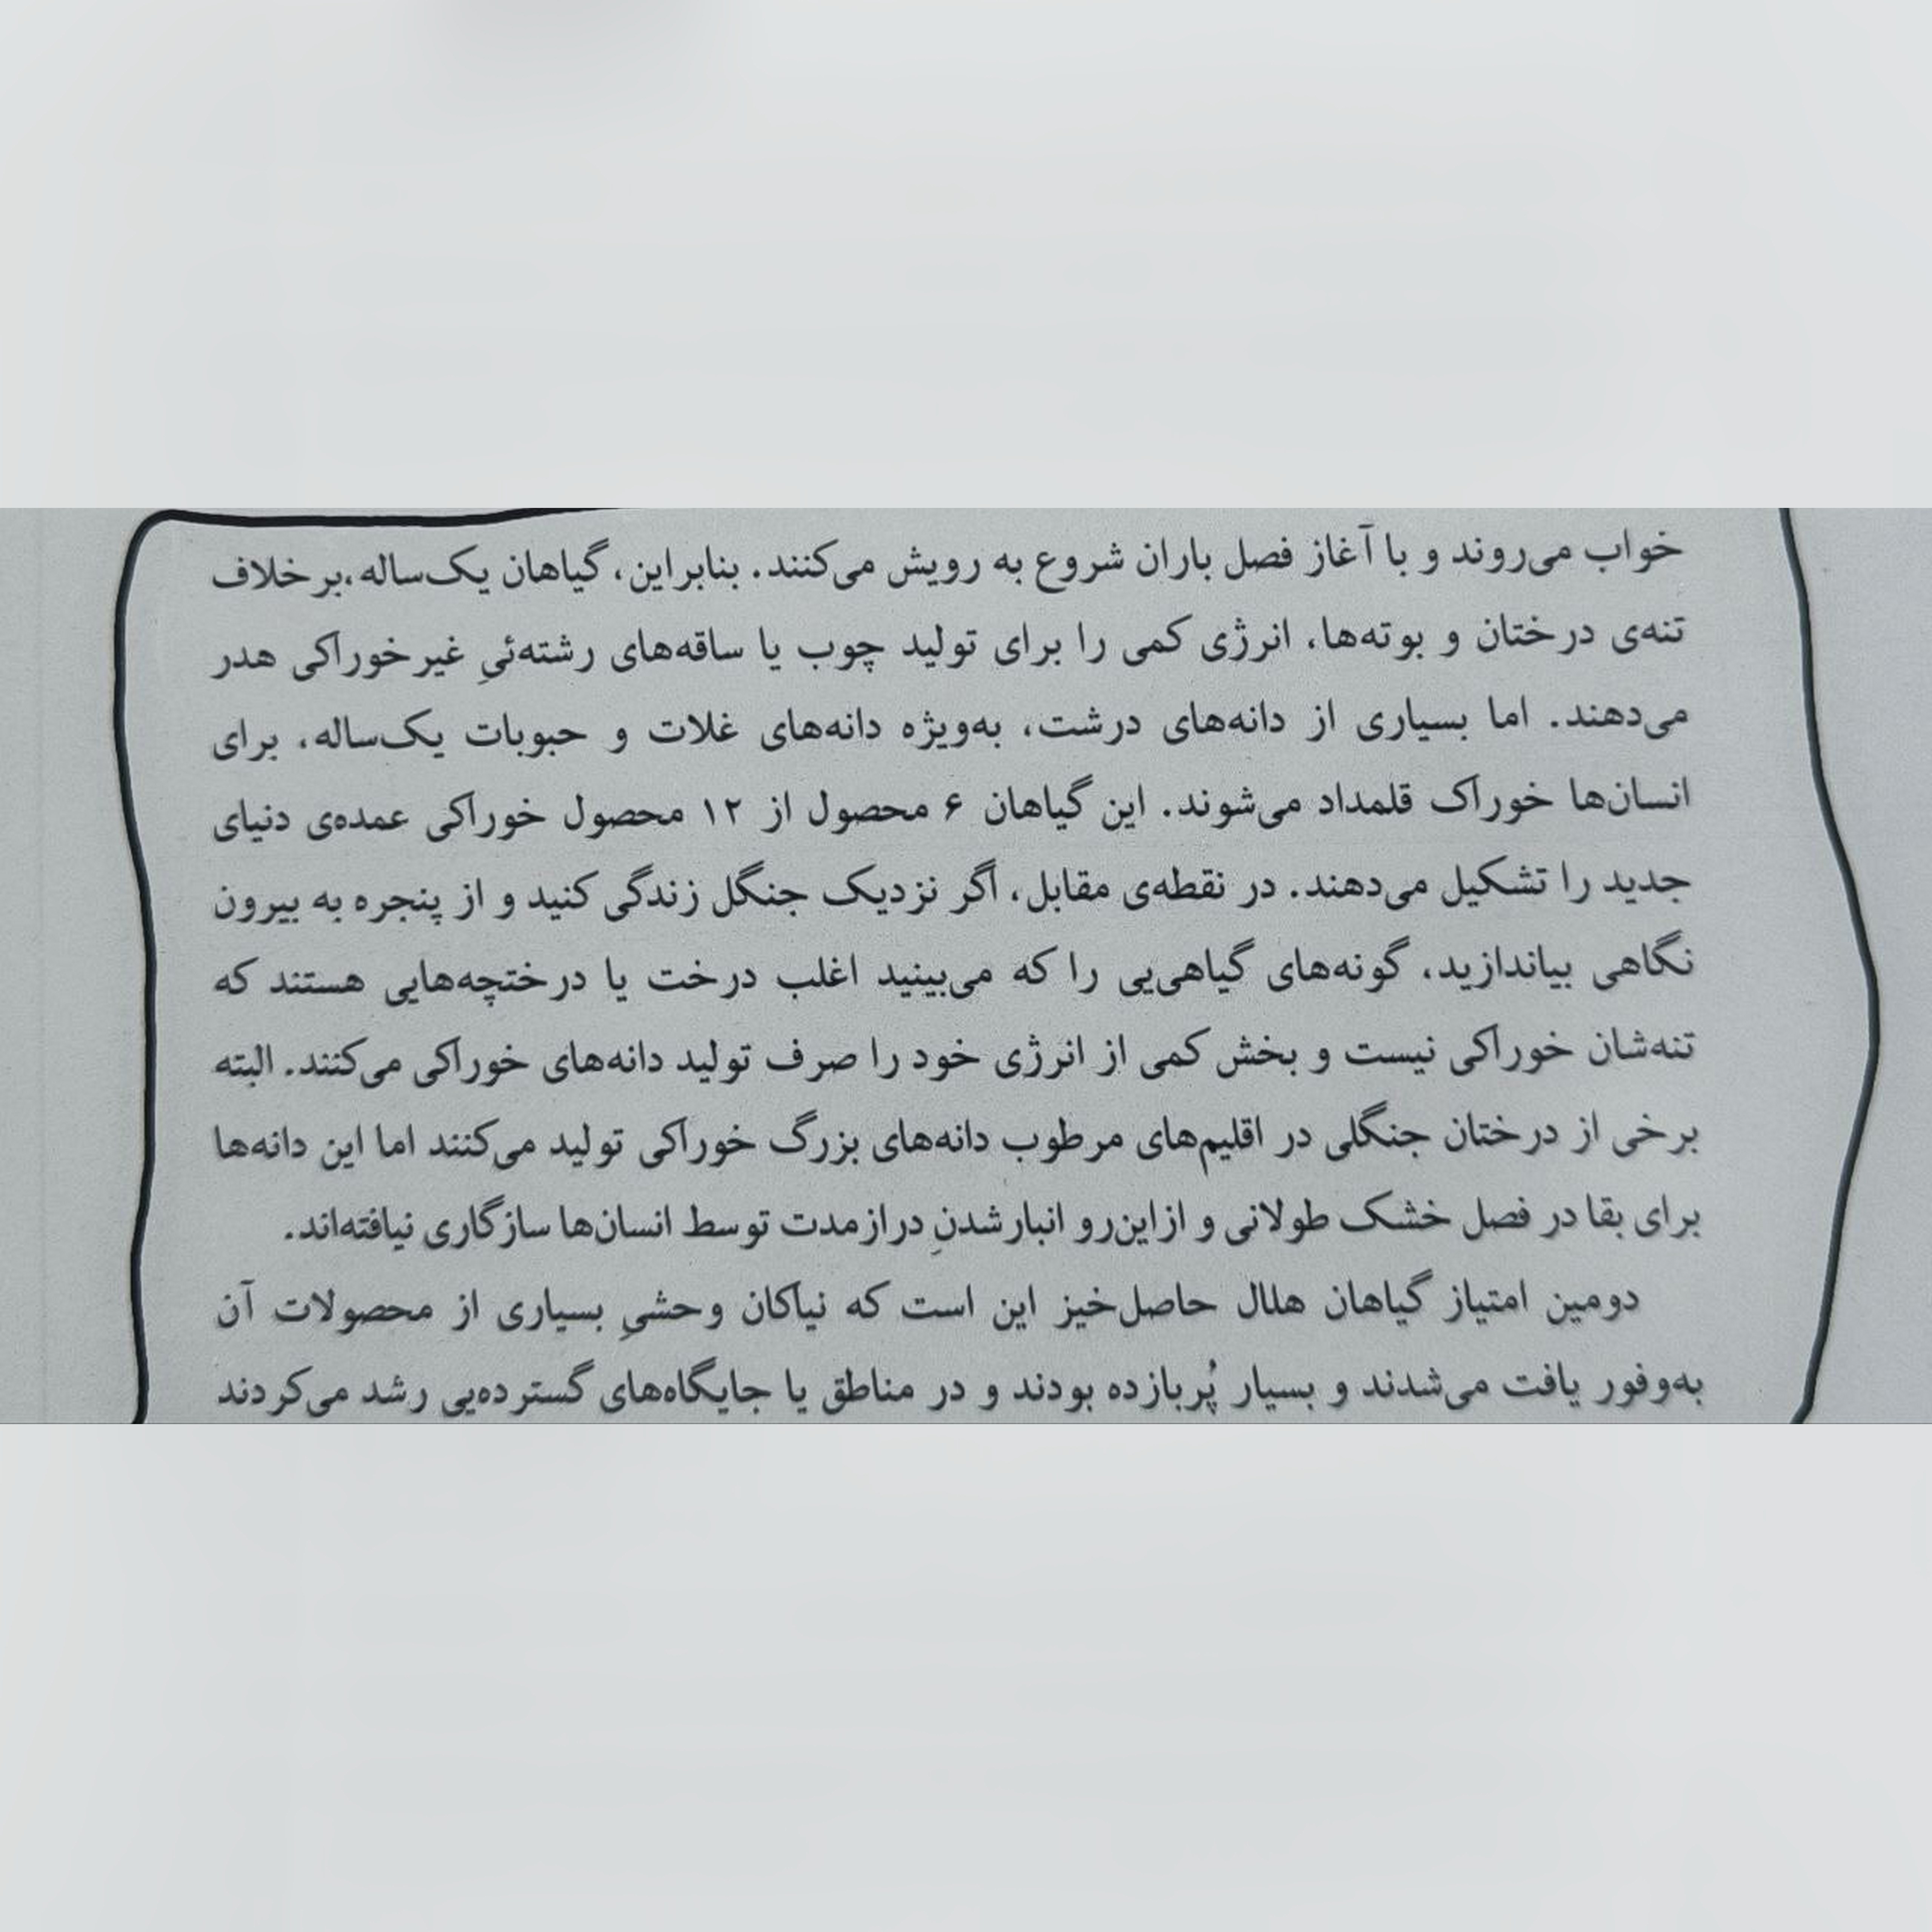 خواب می‌روند و با آغاز فصل باران شروع به رویش می‌کنند. بنابراین، گیاهان یک‌ساله،برخلاف
تنه‌ی درختان و بوته‌ها، انرژی کمی را برای تولید چوب یا ساقه‌های رشته‌ئیِ غیرخوراکی هدر
می‌دهند. اما بسیاری از دانه‌های درشت، به‌ویژه دانه‌های غلات و حبوبات یک‌ساله، برای
انسان‌ها خوراک قلمداد می‌شوند. این گیاهان ۶ محصول از ۱۲ محصول خوراکی عمده‌ی دنیای
جدید را تشکیل می‌دهند. در نقطه‌ی مقابل، اگر نزدیک جنگل زندگی کنید و از پنجره به بیرون
نگاهی بیاندازید، گونه‌های گیاهی‌یی را که می‌بینید اغلب درخت یا درختچه‌هایی هستند که
تنه‌شان خوراکی نیست و بخش کمی از انرژی خود را صرف تولید دانه‌های خوراکی می‌کنند. البته
برخی از درختان جنگلی در اقلیم‌های مرطوب دانه‌های بزرگ خوراکی تولید می‌کنند اما این دانه‌ها
برای بقا در فصل خشک طولانی و ازاین‌رو انبارشدنِ درازمدت توسط انسان‌ها سازگاری نیافته‌اند.
دومین امتیاز گیاهان هلال حاصل‌خیز این است که نیاکان وحشیِ بسیاری از محصولات آن
به‌وفور یافت می‌شدند و بسیار پُربازده بودند و در مناطق یا جایگاه‌های گسترده‌یی رشد می‌کردند